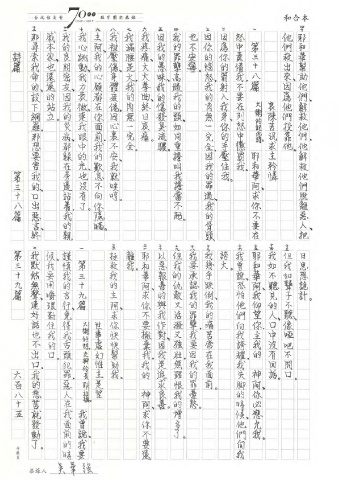 和合本
耶和華幫助他們解救他們他解救他們脫離惡人把
他們救出來因為他們投靠他
哀陳苦況求主矜憐
第三十八篇 大衛的紀念詩 耶和華啊求你不要在
怒中責備我不要在烈怒中懲罰我
因為你的箭射入我身你的手壓住我
因你的惱怒我的肉無一完全因我的罪過我的骨頭
也不安寧
我的罪孽高過我的頭如同重擔叫我擔當不起
因我的愚昧我的傷發臭流膿
我疼痛大大拳曲終日哀痛
我滿腰是火我的肉無一完全
我被壓傷身體疲倦因心裏不安我就唉哼
主啊我的心願都在你面前我的歎息不向你隱瞞
我心跳動我力衰微連我眼中的光也沒有了
我的良朋密友因我的災病都躲在旁邊站著我的親
戚本家也遠遠的站立
那尋索我命的設下網羅那想要害我的口出惡言終
日思想詭計
但我如聾子不聽像啞吧不開口
我如不聽見的人口中沒有回話
耶和華啊我仰望你主我的神啊你必應允我
我曾說恐怕他們向我誇耀我失腳的時候他們向我
誇大
我幾乎跌倒我的痛苦常在我面前
我要承認我的罪孽我要因我的罪憂愁
但我的仇敵又活潑又強壯無理恨我的增多了
以惡報善的與我作對因我是追求良善
耶和華啊求你不要撇棄我我的神啊求你不要遠
離我
拯救我的主啊求你快快幫助我
世事虛幻惟主是望
第三十九篇 大衛的詩交與伶長耶杜頓 我曾說我要
謹慎我的言行免得我舌頭犯罪惡人在我面前的時
候我要用嚼環勒住我的口
我默然無聲連好話也不出口我的愁苦就發動了
詩篇 第三十八篇 第三十九篇 六百八十五